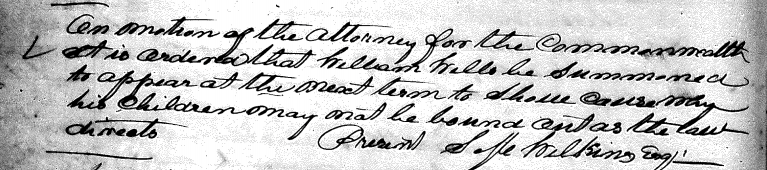 On motion of the Attorney for the Commonwealth
it is ordered that William Wells be Summoned
to appear at the next term to Shew cause why
his Children may not be bound out as the law
directs
Present Wilkins Esqr